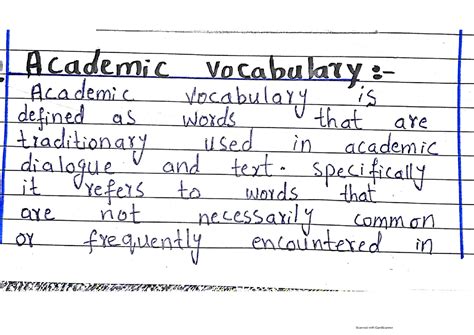 Academic vocabulary :-
Academic vocabulary is
defined as words that are
traditionary used in academic
dialogue and text. specifically
it refers to words that
are not necessarily common
or frequently encountered in
Scanned with CamScanner